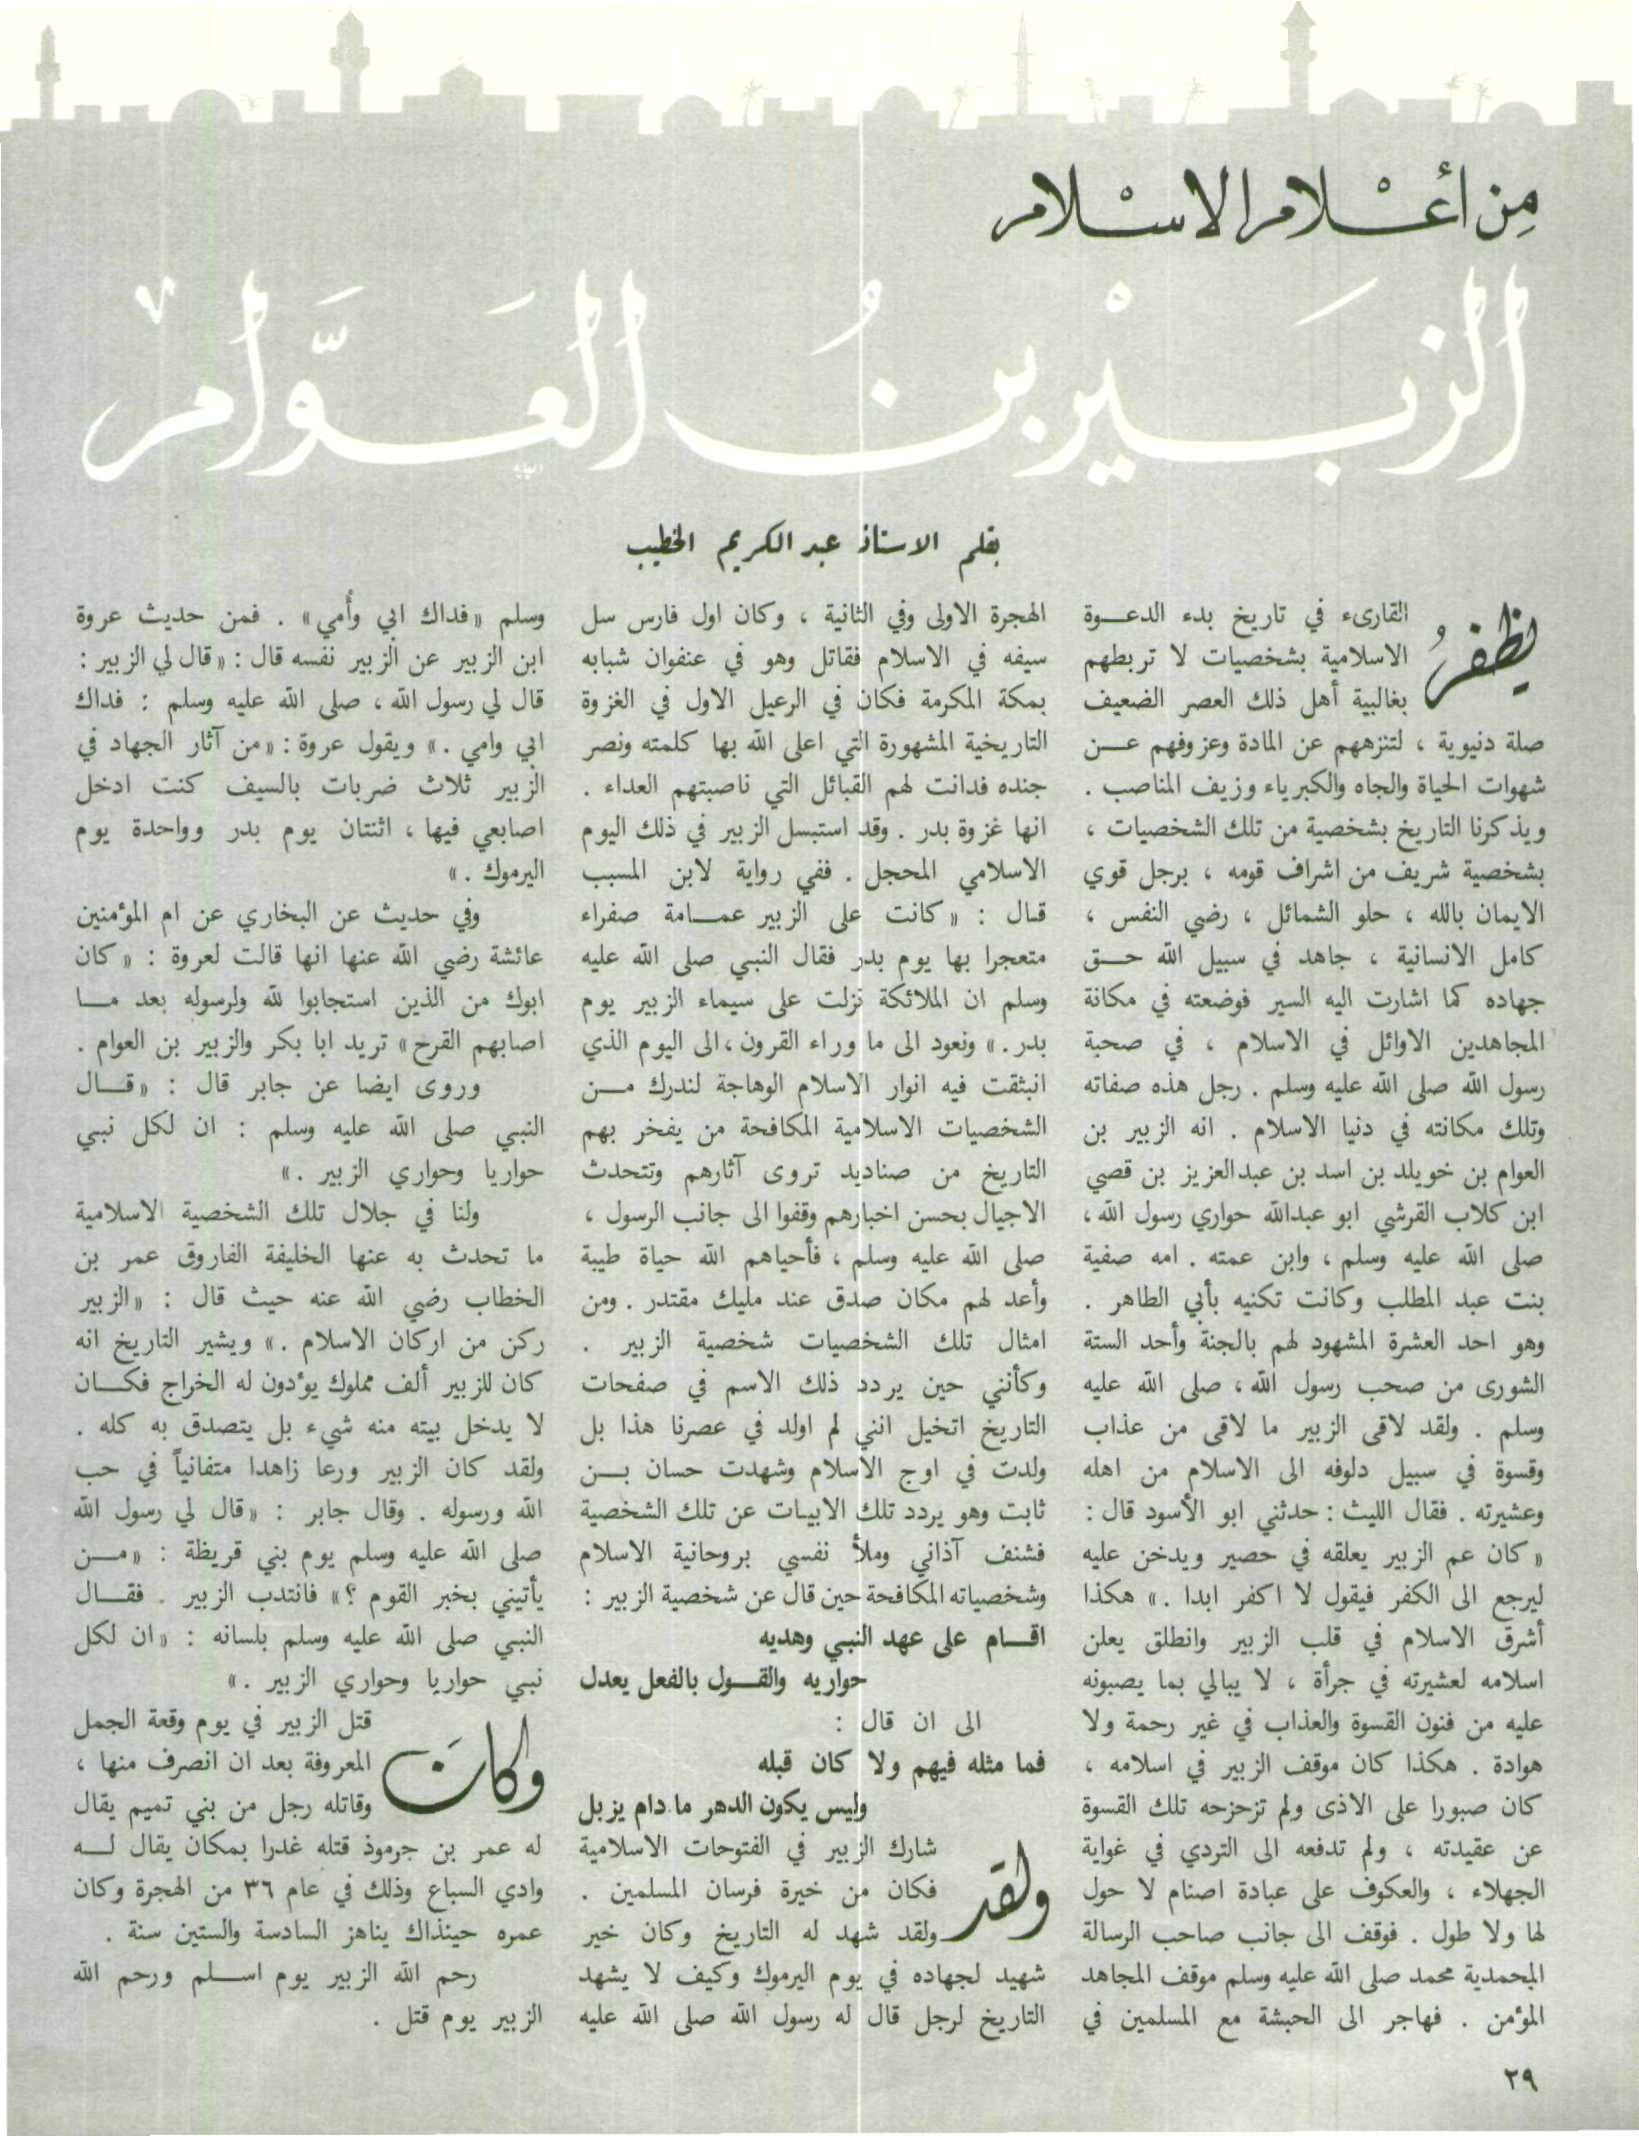 مِن أعْلام الاسْلام
الزبَيْر بنُ العَوَّام
بقلم الاستاذ عبد الكريم الخطيب
يظفرُ القارىء في تاريخ بدء الدعوة
الاسلامية بشخصيات لا تربطهم
بغالبية أهل ذلك العصر الضعيف
صلة دنيوية ، لتنزههم عن المادة وعزوفهم عن
شهوات الحياة والجاه والكبرياء وزيف المناصب .
ويذكرنا التاريخ بشخصية من تلك الشخصيات ،
بشخصية شريف من اشراف قومه ، برجل قوي
الايمان بالله ، حلو الشمائل ، رضي النفس ،
كامل الانسانية ، جاهد في سبيل الله حق
جهاده كما اشارت اليه السير فوضعته في مكانة
المجاهدين الاوائل في الاسلام ، في صحبة
رسول الله صلى الله عليه وسلم . رجل هذه صفاته
وتلك مكانته في دنيا الاسلام . انه الزبير بن
العوام بن خويلد بن اسد بن عبدالعزيز بن قصي
ابن كلاب القرشي ابو عبدالله حواري رسول الله،
صلى الله عليه وسلم ، وابن عمته . امه صفية
بنت عبد المطلب وكانت تكنيه بأبي الطاهر .
وهو احد العشرة المشهود لهم بالجنة وأحد الستة
الشورى من صحب رسول الله، صلى الله عليه
وسلم . ولقد لاقى الزبير ما لاقى من عذاب
وقسوة في سبيل دلوفه الى الاسلام من اهله
وعشيرته . فقال الليث : حدثني ابو الأسود قال :
« كان عم الزبير يعلقه في حصير ويدخن عليه
ليرجع الى الكفر فيقول لا اكفر ابدا .» هكذا
أشرق الاسلام في قلب الزبير وانطلق يعلن
اسلامه لعشيرته في جرأة ، لا يبالي بما يصبونه
عليه من فنون القسوة والعذاب في غير رحمة ولا
هوادة . هكذا كان موقف الزبير في اسلامه ،
كان صبورا على الاذى ولم تزحزحه تلك القسوة
عن عقيدته ، ولم تدفعه الى التردي في غواية
الجهلاء ، والعكوف على عبادة اصنام لا حول
لها ولا طول . فوقف الى جانب صاحب الرسالة
المحمدية محمد صلى الله عليه وسلم موقف المجاهد
المؤمن . فهاجر الى الحبشة مع المسلمين في
الهجرة الاولى وفي الثانية ، وكان اول فارس سل
سيفه في الاسلام فقاتل وهو في عنفوان شبابه
بمكة المكرمة فكان في الرعيل الاول في الغزوة
التاريخية المشهورة التي اعلى الله بها كلمته ونصر
جنده فدانت لهم القبائل التي ناصبتهم العداء .
انها غزوة بدر . وقد استبسل الزبير في ذلك اليوم
الاسلامي المحجل . ففي رواية لابن المسبب
قال : « كانت على الزبير عمامة صفراء
متعجرا بها يوم بدر فقال النبي صلى الله عليه
وسلم ان الملائكة نزلت على سيماء الزبير يوم
بدر.» ونعود الى ما وراء القرون ،الى اليوم الذي
انبثقت فيه انوار الاسلام الوهاجة لندرك من
الشخصيات الاسلامية المكافحة من يفخر بهم
التاريخ من صناديد تروى آثارهم وتتحدث
الاجيال بحسن اخبارهم وقفوا الى جانب الرسول ،
صلى الله عليه وسلم ، فأحياهم الله حياة طيبة
وأعد لهم مكان صدق عند مليك مقتدر . ومن
امثال تلك الشخصيات شخصية الزبير .
وكأنني حين يردد ذلك الاسم في صفحات
التاريخ اتخيل انني لم اولد في عصرنا هذا بل
ولدت في اوج الاسلام وشهدت حسان بن
ثابت وهو يردد تلك الابيات عن تلك الشخصية
فشنف آذاني وملأ نفسي بروحانية الاسلام
وشخصياته المكافحة حين قال عن شخصية الزبير :
اقام على عهد النبي وهديه
حواريه والقول بالفعل يعدل
الى ان قال :
فما مثله فيهم ولا كان قبله
وليس يكون الدهر ما دام يزبل
ولقد شارك الزبير في الفتوحات الاسلامية
فكان من خيرة فرسان المسلمين .
ولقد شهد له التاريخ وكان خير
شهيد لجهاده في يوم اليرموك وكيف لا يشهد
التاريخ لرجل قال له رسول الله صلى الله عليه
وسلم «فداك ابي وأُمي» . فمن حديث عروة
ابن الزبير عن الزبير نفسه قال : «قال لي الزبير :
قال لي رسول الله ، صلى الله عليه وسلم : فداك
ابي وامي .» ويقول عروة : «من آثار الجهاد في
الزبير ثلاث ضربات بالسيف كنت ادخل
اصابعي فيها ، اثنتان يوم بدر وواحدة يوم
اليرموك .»
وفي حديث عن البخاري عن ام المؤمنين
عائشة رضي الله عنها انها قالت لعروة : «كان
ابوك من الذين استجابوا لله ولرسوله بعد ما
اصابهم القرح» تريد ابا بكر والزبير بن العوام .
وروى ايضا عن جابر قال : «قال
النبي صلى الله عليه وسلم : ان لكل نبي
حواريا وحواري الزبير .»
ولنا في جلال تلك الشخصية الاسلامية
ما تحدث به عنها الخليفة الفاروق عمر بن
الخطاب رضي الله عنه حيث قال : «الزبير
ركن من اركان الاسلام .» ويشير التاريخ انه
كان للزبير ألف مملوك يؤدون له الخراج فكان
لا يدخل بيته منه شيء بل يتصدق به كله .
ولقد كان الزبير ورعا زاهدا متفانياً في حب
الله ورسوله . وقال جابر : «قال لي رسول الله
صلى الله عليه وسلم يوم بني قريظة : «من
يأتيني بخبر القوم ؟» فانتدب الزبير . فقال
النبي صلى الله عليه وسلم بلسانه : «ان لكل
نبي حواريا وحواري الزبير .»
وكانَ قتل الزبير في يوم وقعة الجمل
المعروفة بعد ان انصرف منها ،
وقاتله رجل من بني تميم يقال
له عمر بن جرموذ قتله غدرا بمكان يقال له
وادي السباع وذلك في عام ٣٦ من الهجرة وكان
عمره حينذاك يناهز السادسة والستين سنة .
رحم الله الزبير يوم اسلم ورحم الله
الزبير يوم قتل .
٢٩